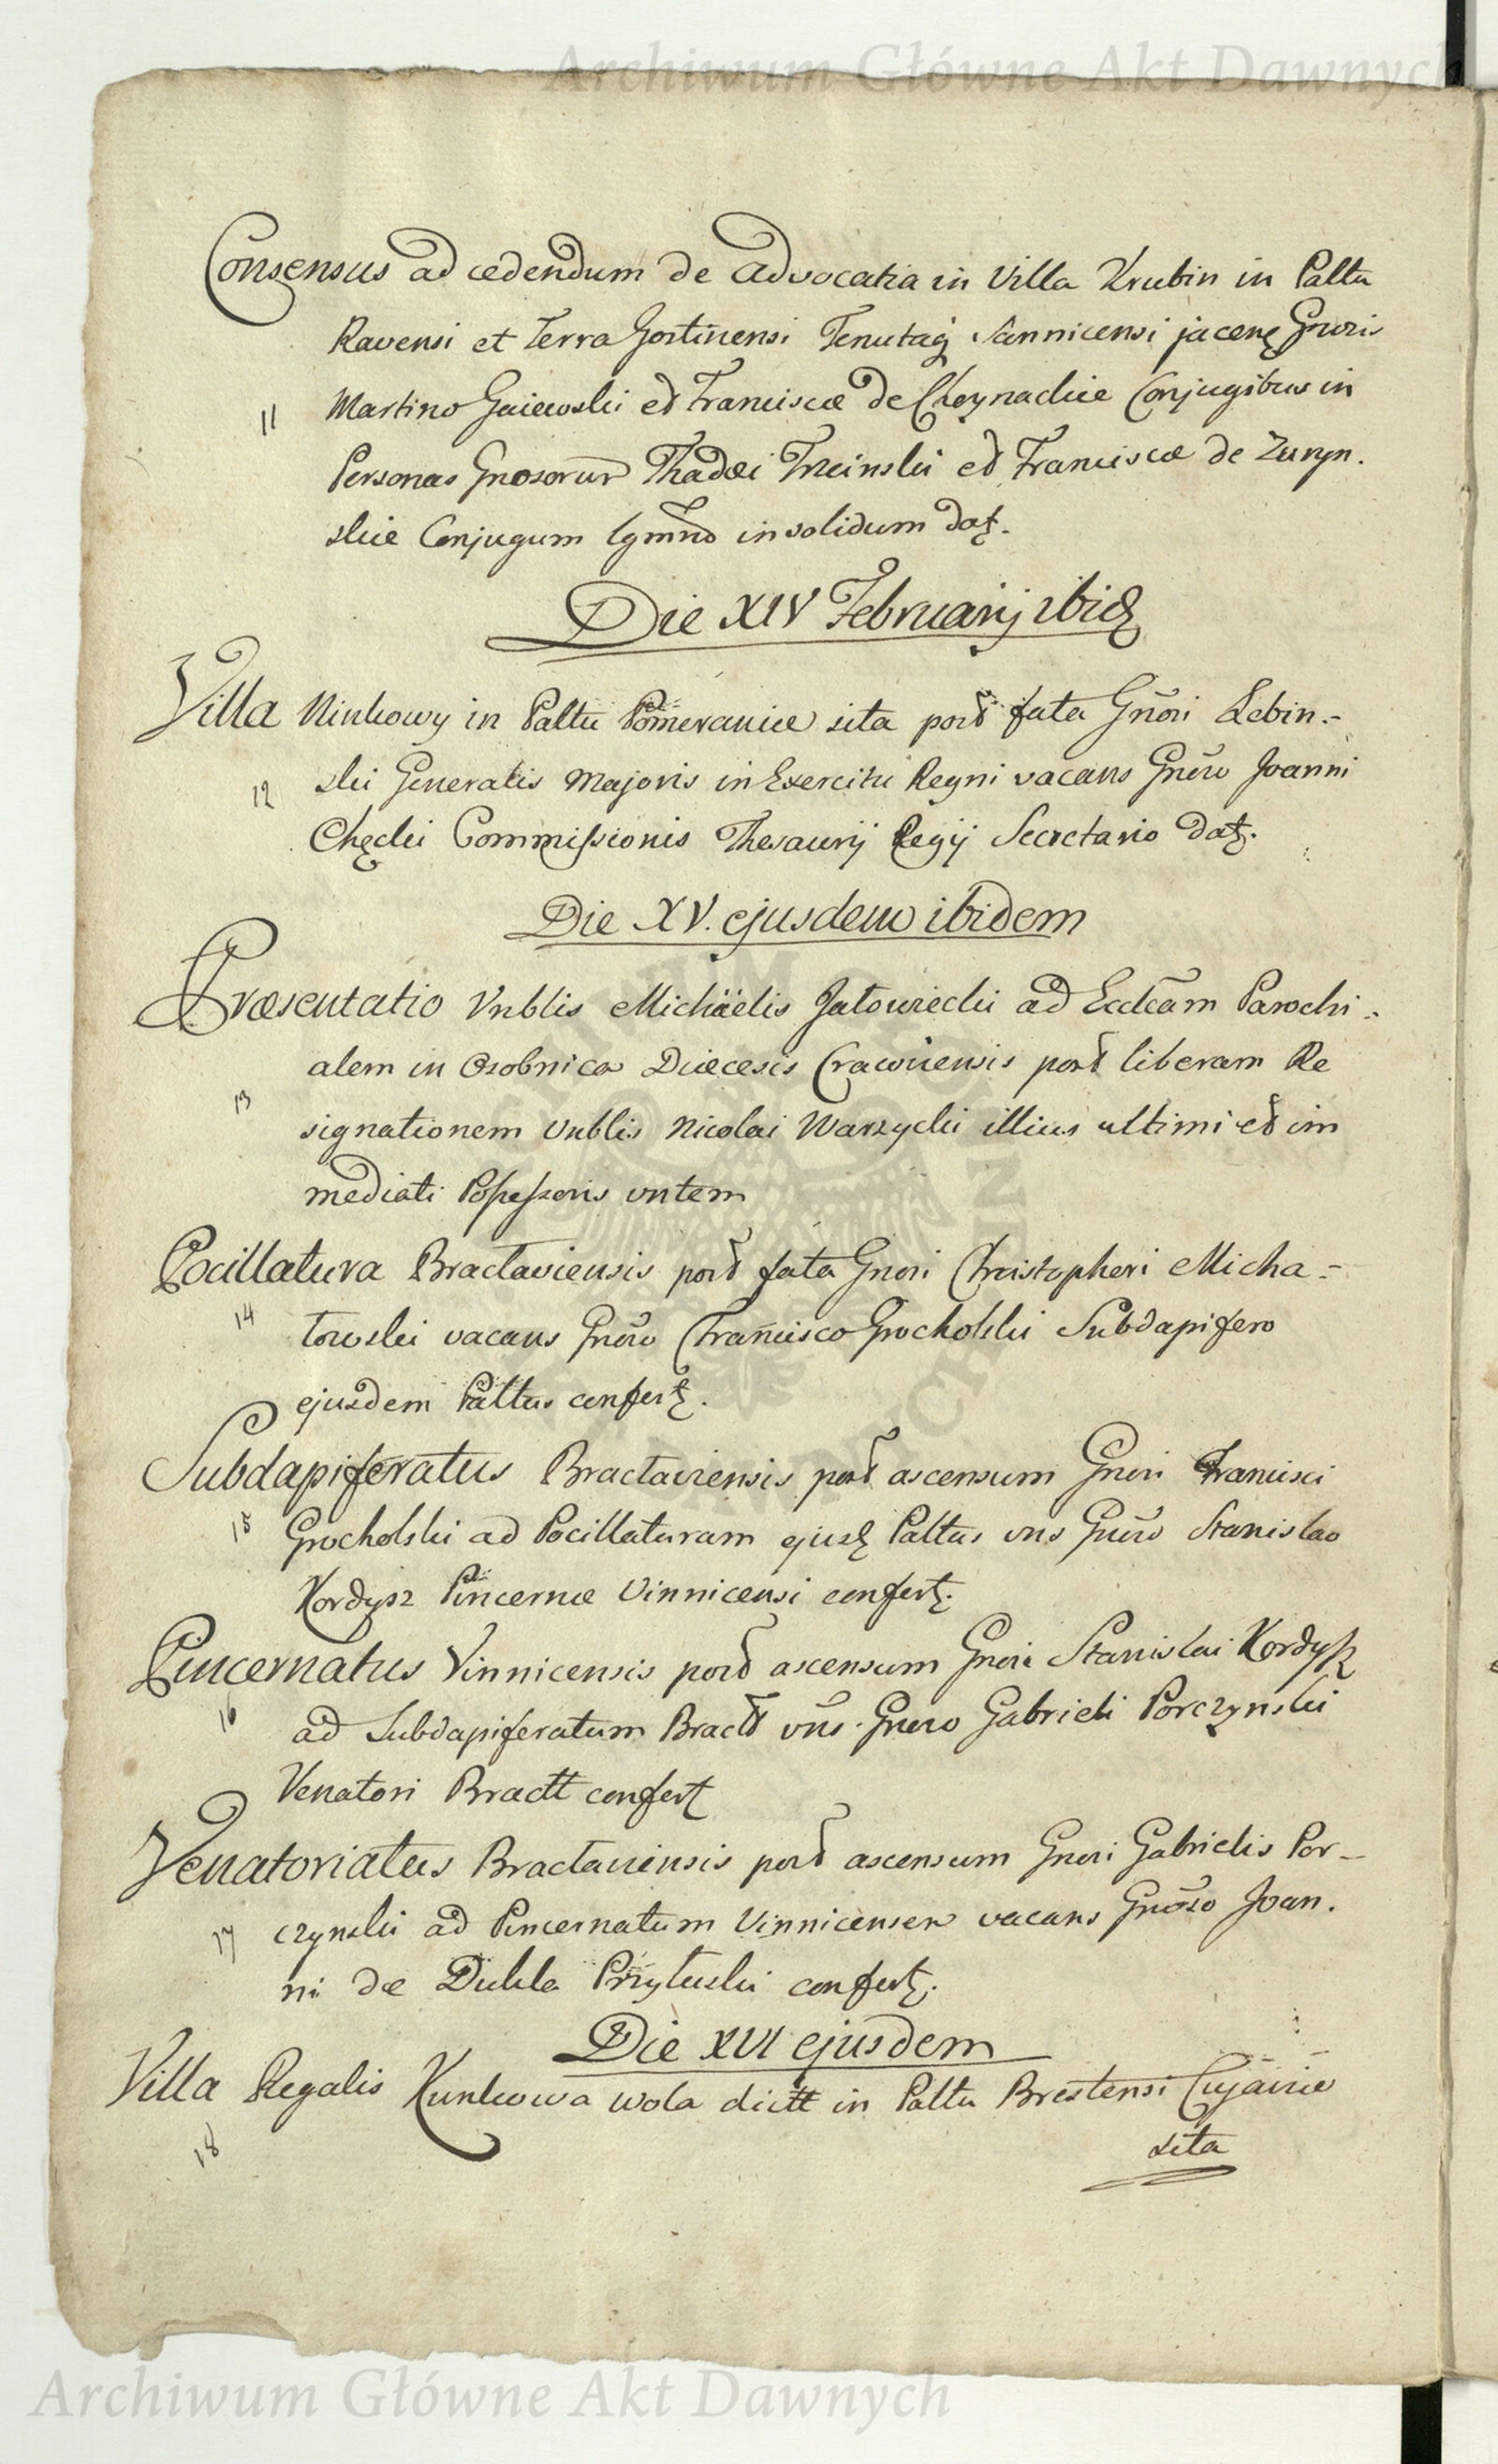 Archiwum Główne Akt Dawnych
Consensus ad cedendum de Advocatia in Villa Krubin in Palttu
Ravensi et Terra Gostinensi Tenutaq Sannicensi jacen Gnrosis
11 Martino Gaiewski et Franciscæ de Choynackie Conjugibus in
Personas Gnosorum Thadæi Trzcinski et Franciscæ de Zuryn.
skie Conjugum insolidum dat.
Die XIV Februarij ibid
Villa Ninkowy in Palttu Pomeraniæ sita post fata Gnosi Lebin.-
12 ski Generalis Majoris in Exercitu Regni vacans Gnoso Joanni
Chęcki Commissionis Thesaurij Regij Secretario dat.
Die XV. ejusdem ibidem
Præsentatio Vnblis Michäelis Jałowiecki ad Eccleam Parochi-
alem in Osobnica Diæcesis Cracoviensis post liberam Re
13 signationem Vnblis Nicolai Warzycki illius ultimi et im
mediati Possessoris vntem
Pocillatura Braclaviensis post fata Gnosi Christopheri Micha-
14 łowski vacans Gnoso Francisco Grocholski Subdapifero
ejusdem Palttus confert.
Subdapiferatus Braclaviensis post ascensum Gnosi Francisci
15 Grocholski ad Pocillaturam ejusd Palttus vns Gnoso Stanislao
Kordysz Pincernæ Vinnicensi confert.
Pincernatus Vinnicensis post ascensum Gnosi Stanislai Kordysz
16 ad Subdapiferatum Braclt vns Gnoso Gabrieli Porczynski
Venatori Braclt confert
Venatoriatus Braclaviensis post ascensum Gnosi Gabrielis Por-
17 czynski ad Pincernatum Vinnicensem vacans Gnoso Joan.
ni de Dukla Przyłuski confert.
Die XVI ejusdem
Villa Regalis Kunkowa wola dictt in Palttu Brestensi Cujaviæ
18 sita
Archiwum Główne Akt Dawnych